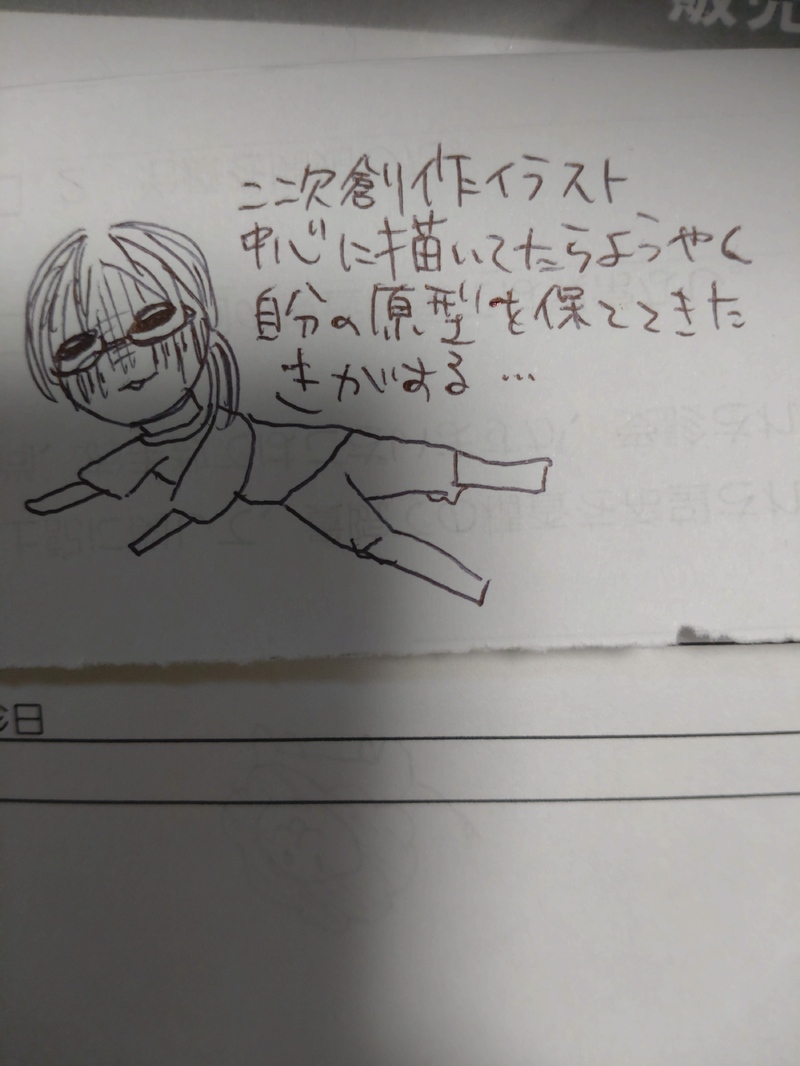 販売
二次創作イラスト
中心に描いてたらようやく
自分の原型を保ててきた
きがする…
日